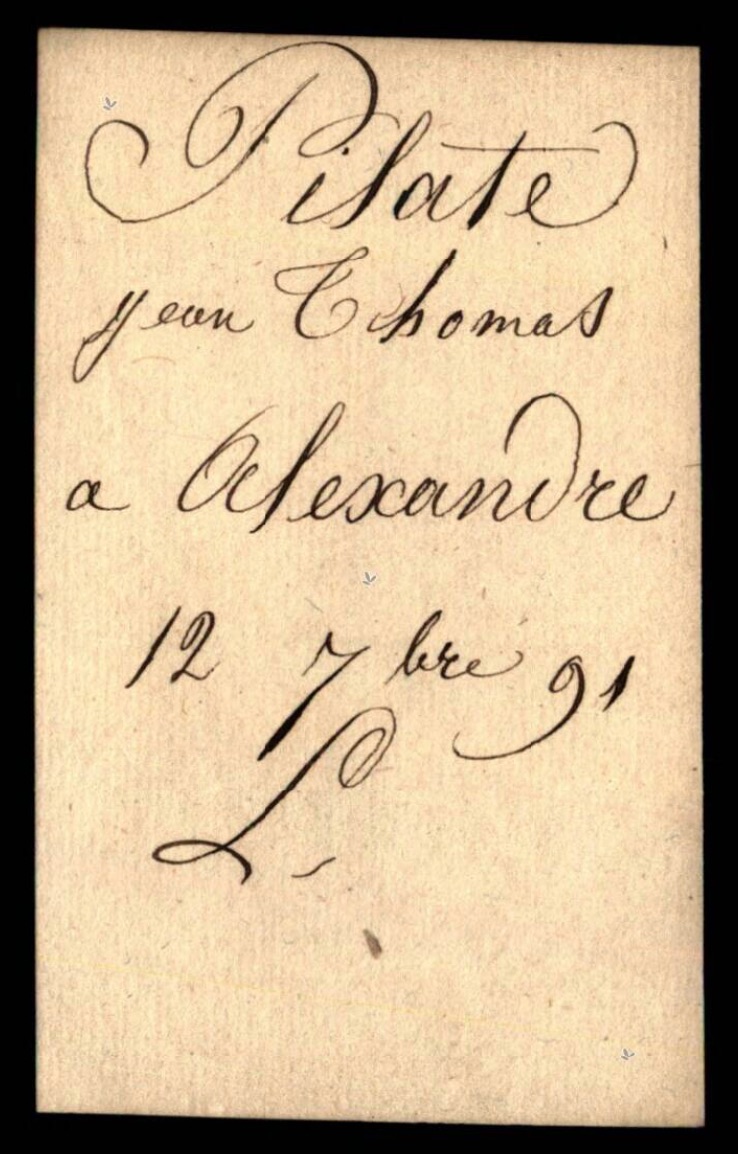 Pilate
jean Thomas
a Alexandre
12 7bre 91
L.